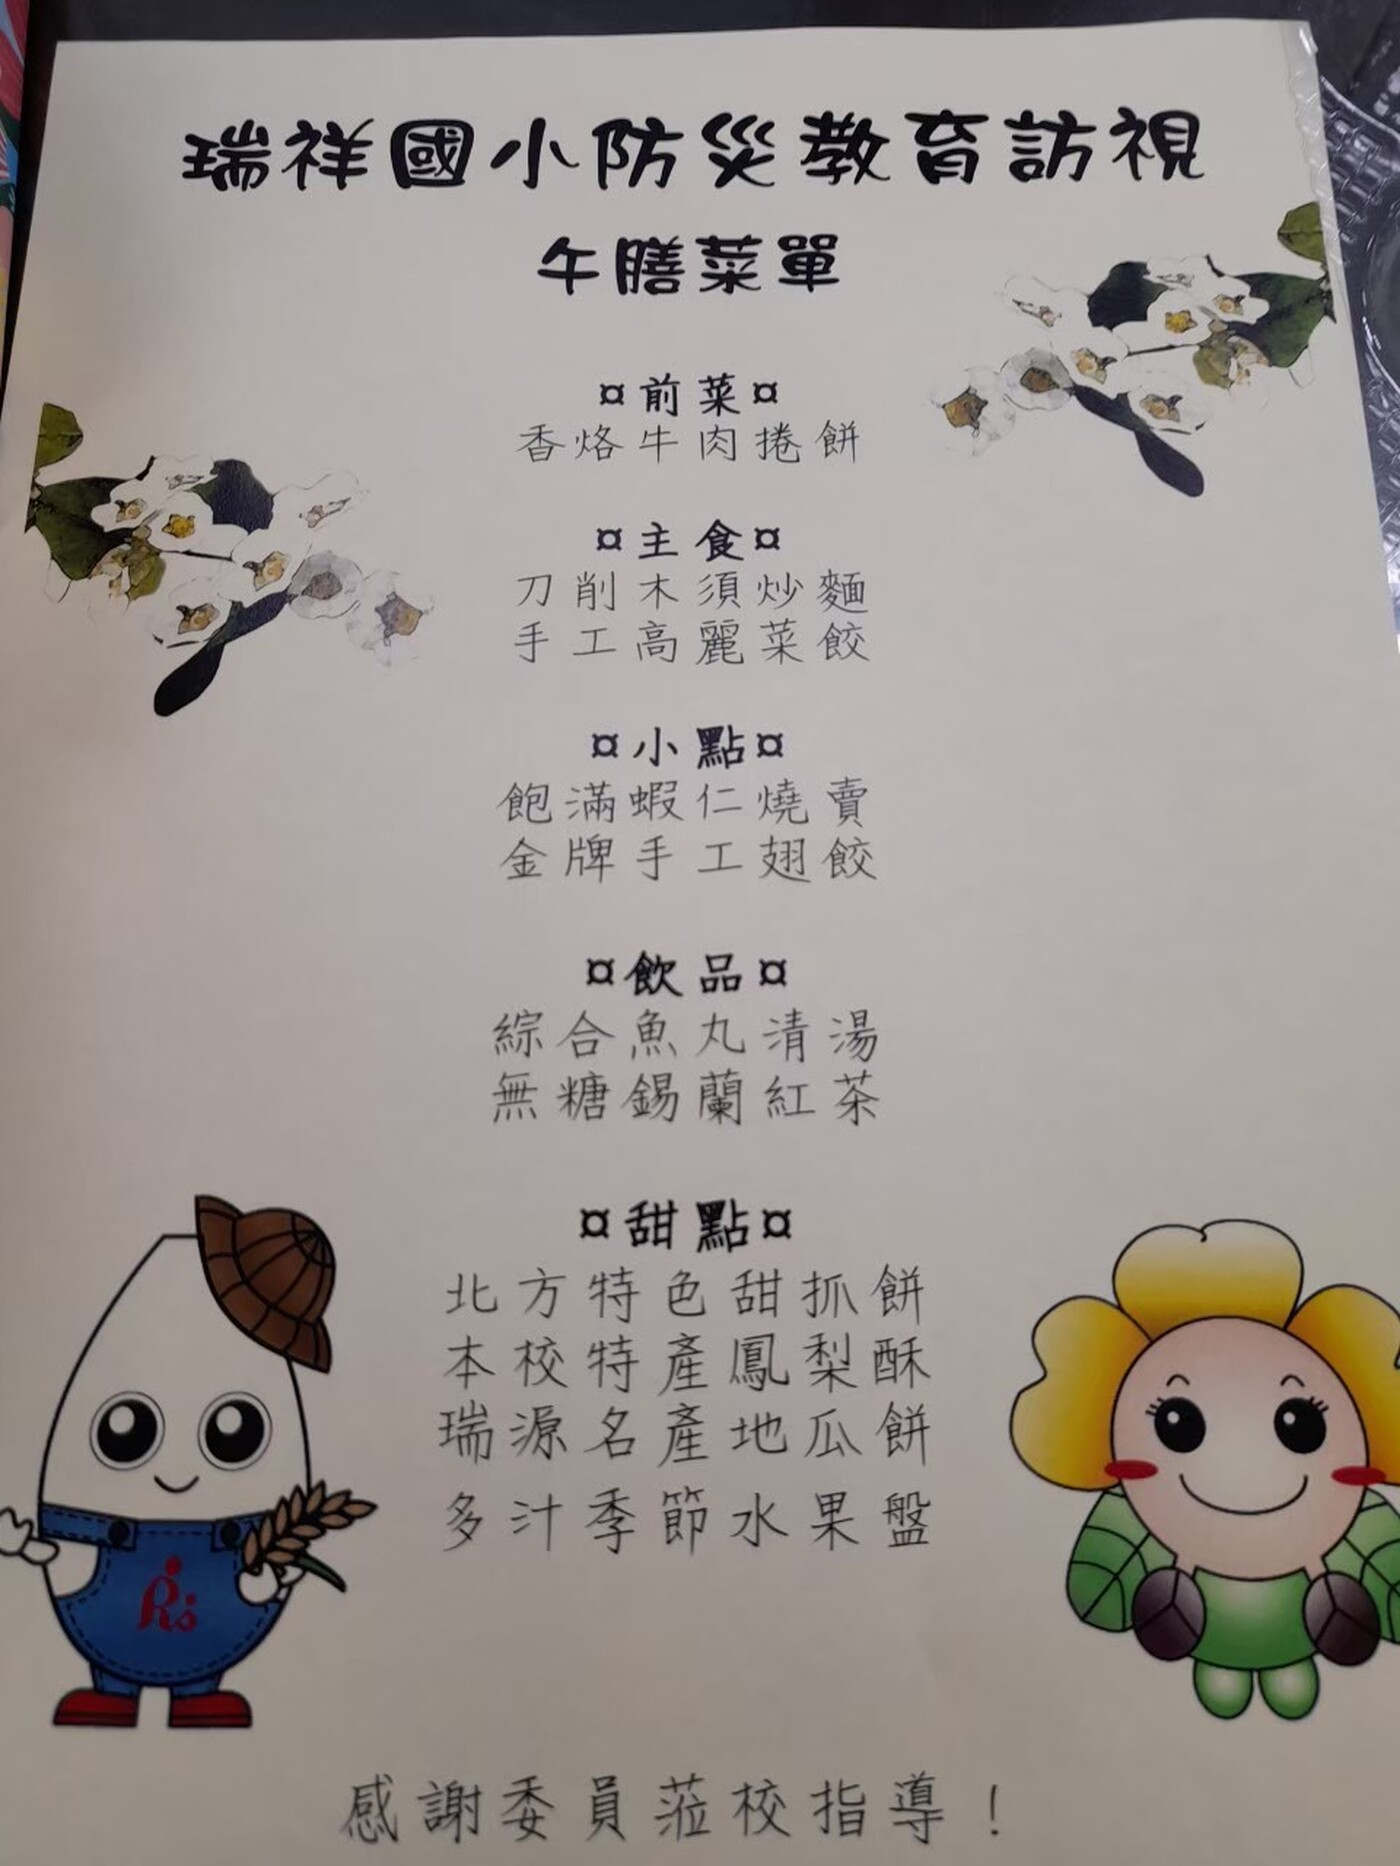 瑞祥國小防災教育訪視
午膳菜單
¤前菜¤
香烙牛肉捲餅
¤主食¤
刀削木須炒麵
手工高麗菜餃
¤小點¤
飽滿蝦仁燒賣
金牌手工翅餃
¤飲品¤
綜合魚丸清湯
無糖錫蘭紅茶
¤甜點¤
北方特色甜抓餅
本校特產鳳梨酥
瑞源名產地瓜餅
多汁季節水果盤
Rs
感謝委員蒞校指導！